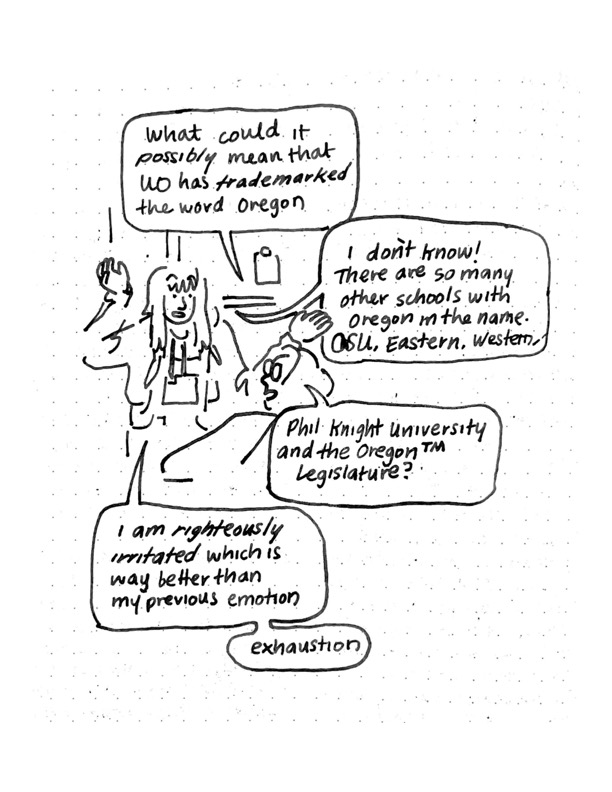 What could it
possibly mean that
UO has trademarked
the word Oregon
I don't know!
There are so many
other schools with
Oregon in the name.
OSU, Eastern, Western,
Phil Knight University
and the Oregon™
Legislature?
I am righteously
irritated which is
way better than
my previous emotion
exhaustion